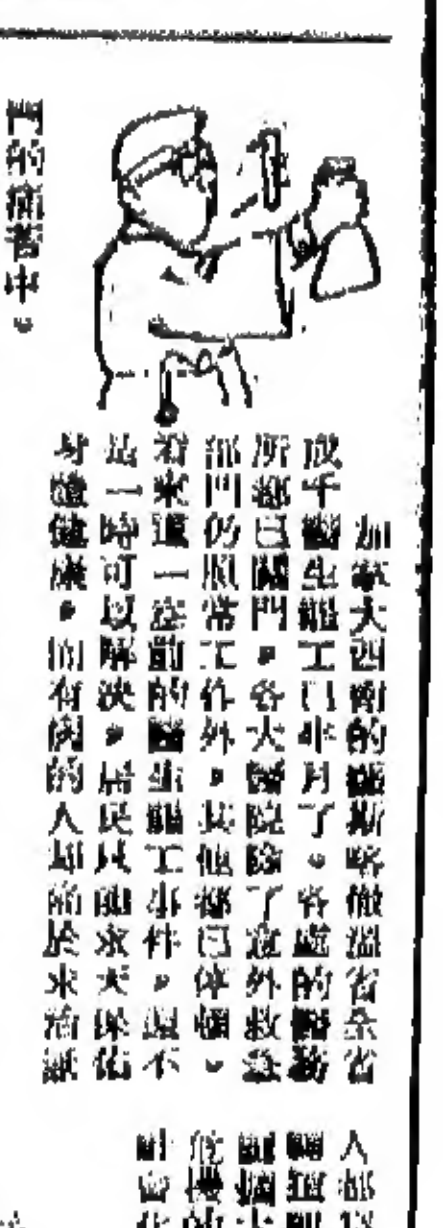 加拿大西部的薩斯喀徹溫省全省
成千醫生罷工已半月了。各處的醫務
所都已關門,各大醫院除了意外救急
部門仍照常工作外,其他都已停頓。
看來這一空前的醫生罷工事件,還不
是一時可以解決,居民只能求天保佑
身體健康,而有病的人却陷於求治無
門的痛苦中。